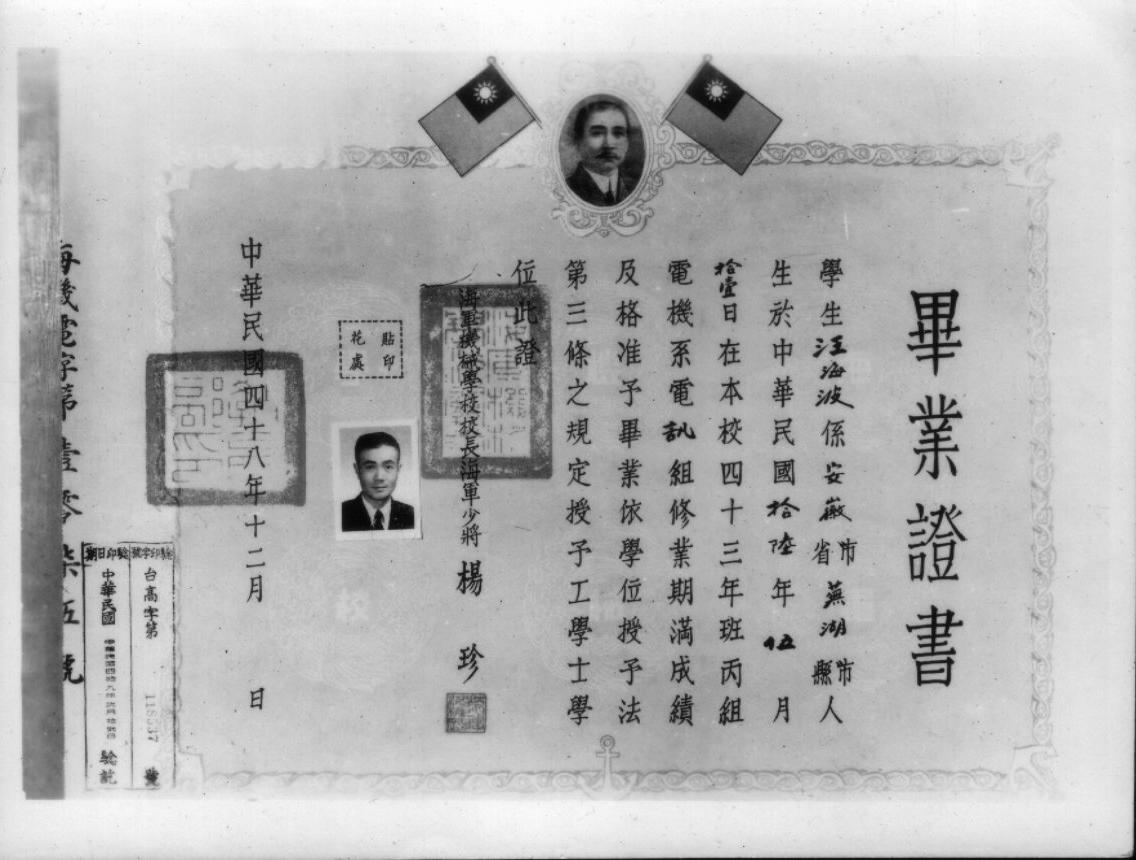 畢業證書
學生汪海波係安徽省市蕪湖縣市人
生於中華民國拾陸年伍月
拾壹日在本校四十三年班丙組
電機系電訊組修業期滿成績
及格准予畢業依學位授予法
第三條之規定授予工學士學
位此證
海軍機械學校校長海軍少將楊珍
貼印
花處
中華民國四十八年十二月 日
海機電字第壹零柒伍號
驗印字號
台高字第 號
驗印日期
中華民國
驗訖